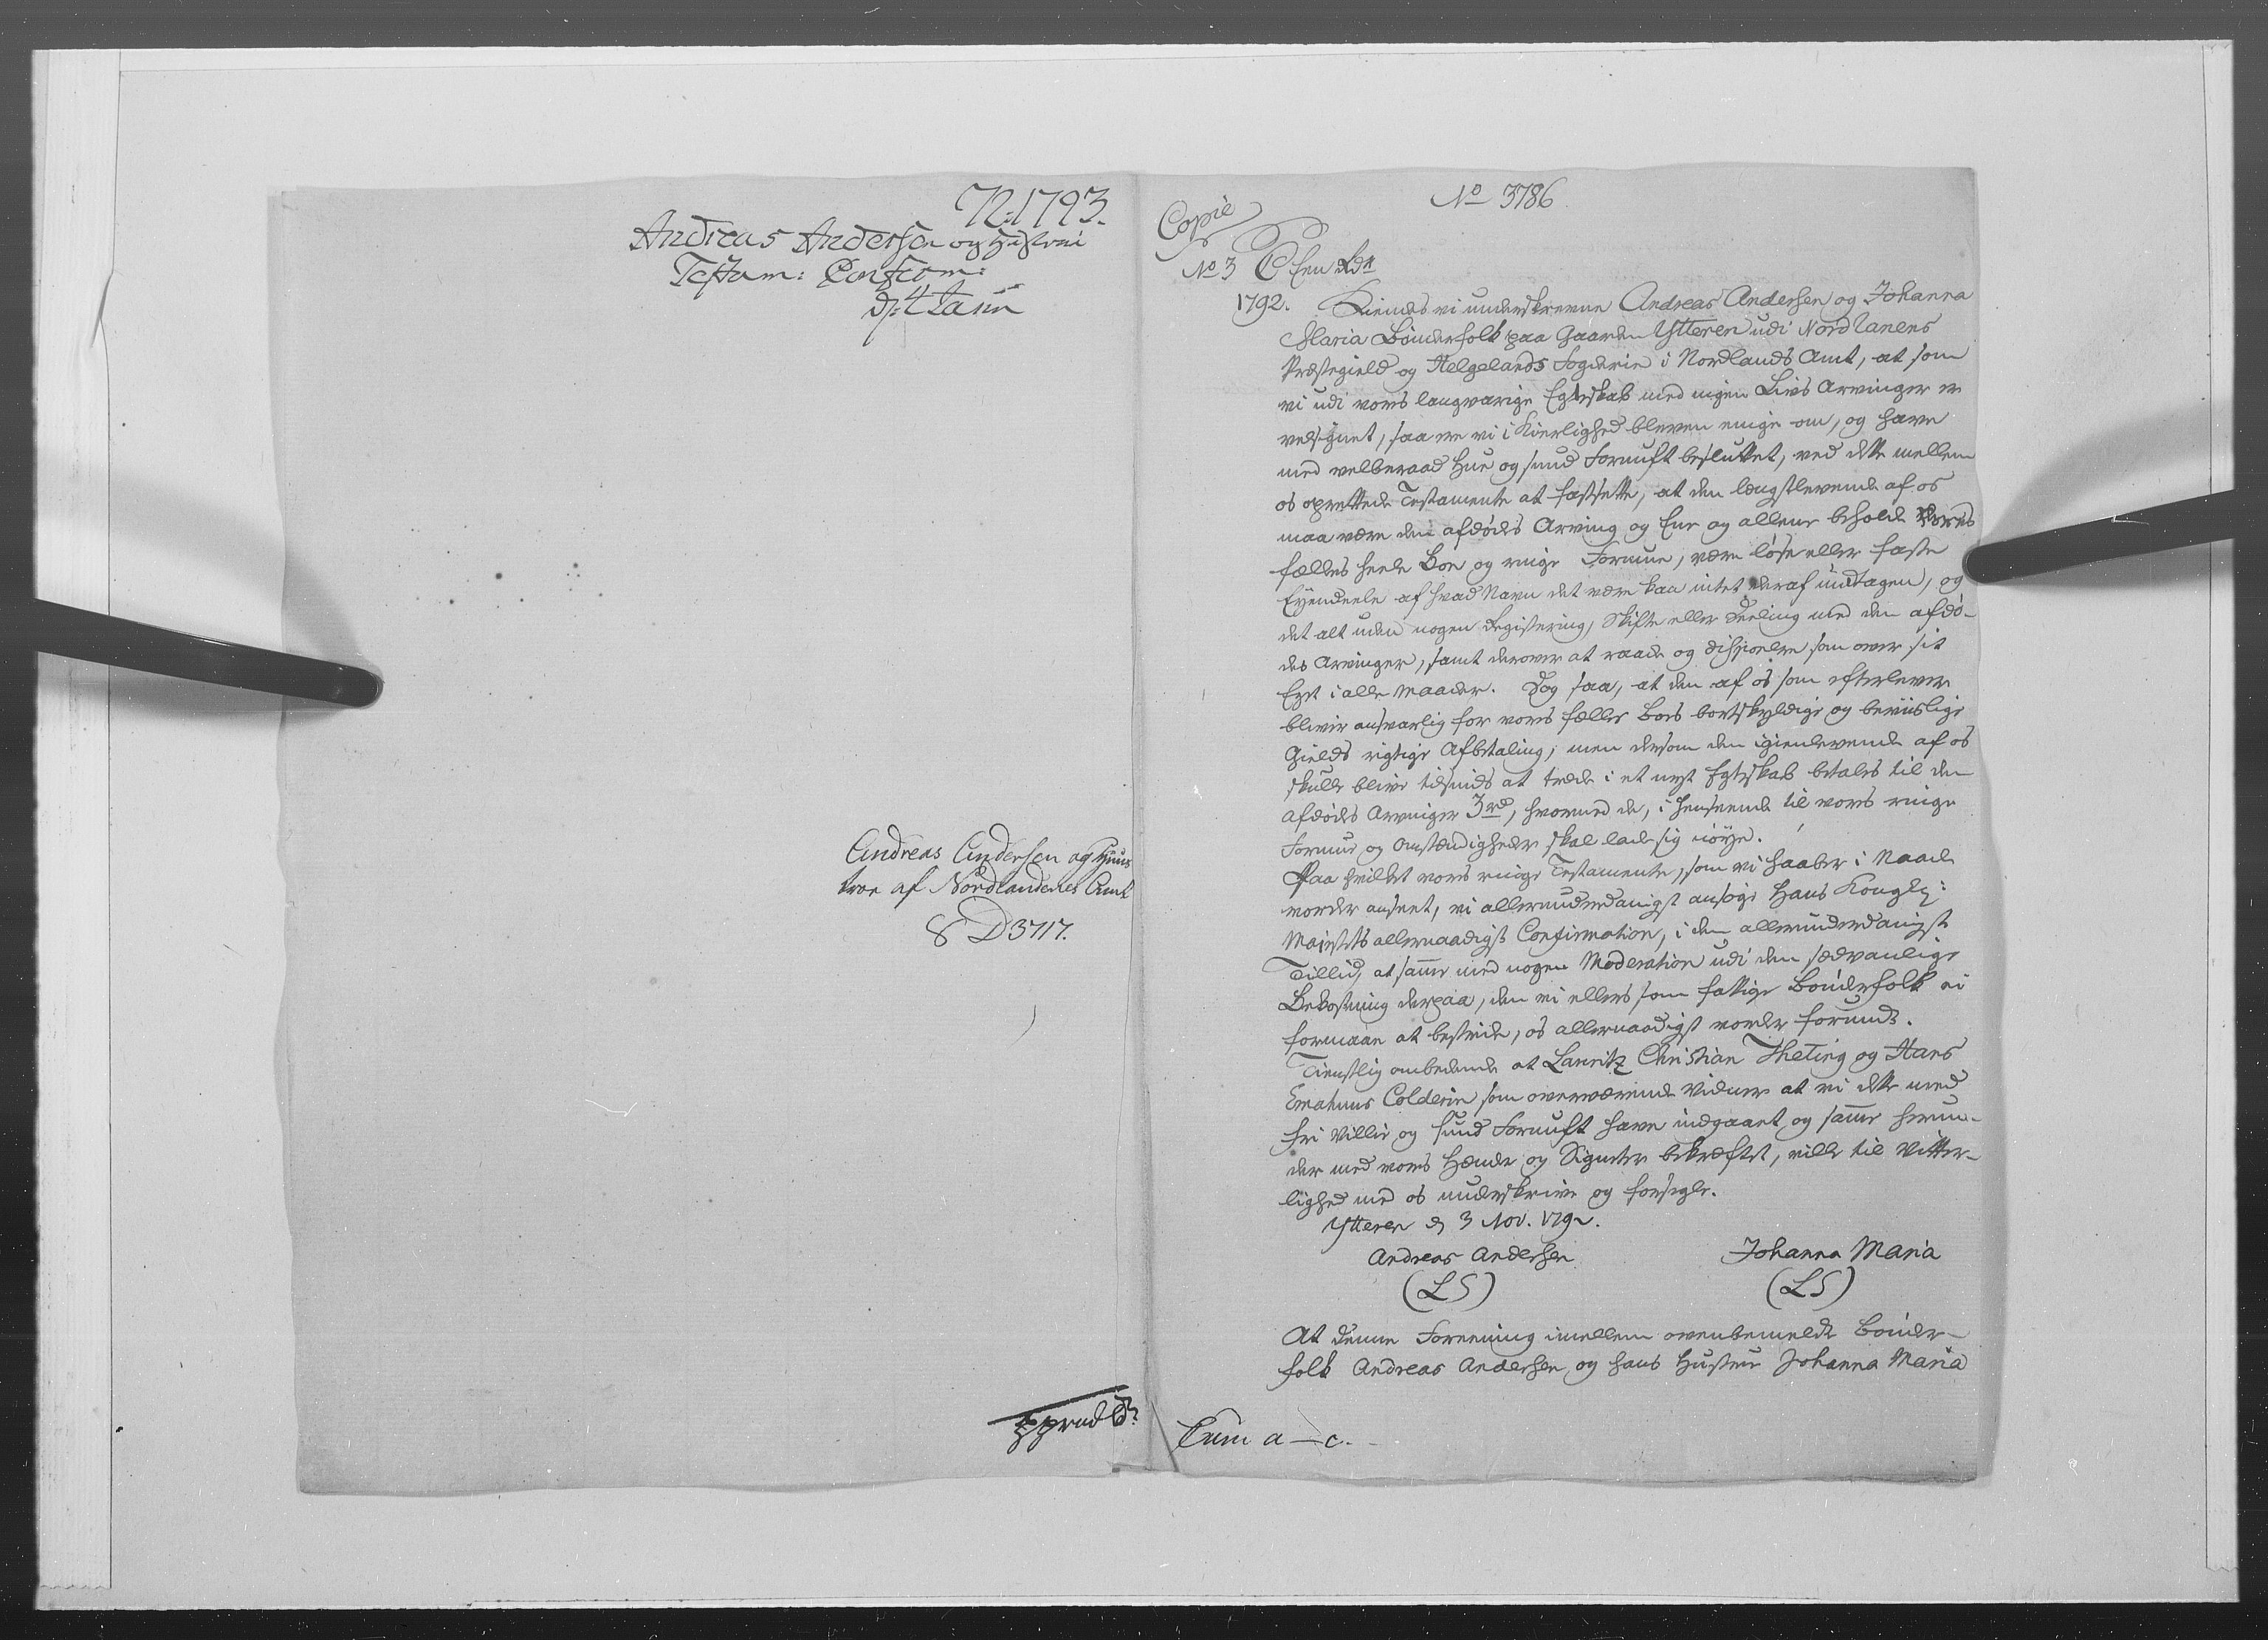 72:1793.
Andreas Andersen og Hustrue
Testam: Confirm:
d: 4 Janu
Andreas Andersen og Huus
troe af Nordlandenes Amt
8 D 3717.
No 3786
Copie
No 3
6 sen Rdr
1792. Kiendes vi underskrevne Andreas Andersen og Johanna
Maria Bønderfolk paa Gaarden Ytteren udi Nord Ranens
Præstegield og Helgelands Fogderie i Nordlands Amt, at som
vi udi vores langvarige Egteskab med ingen Livs Arvinger er
velsignet, saa ere vi i Kierlighed bleven enige om, og have
med velberaad Hue og sund Fornuft besluttet, ved dette mellem
os oprettede Testamente at fastsette, at den længstlevende af os
maa være den afdødes Arving og Ene og allene beholde vores
fælles heele Boe og ringe Formue, være løse eller faste
Eyendeele af hvad Navn det være kan intet deraf undtagen, og
det alt uden nogen Registering, Skifte eller Deeling med den afdø-
des Arvinger, samt derover at raade og disponere som over sit
Eget i alle Maader. Dog saa, at den af os som efterlever
blivir ansvarlig for vores fælles Boes bortskyldige og beviislige
Gields rigtige Afbetaling, men dersom den igienlevende af os
skulle blive tilsinds at træde i et nyt Egteskab betales til den
afdødes Arvinger 3 rd, hvormed de, i Henseende til vores ringe
Formue og Omstændigheder skal lade sig nøye.
Paa hvilket vores ringe Testamente, som vi haaber i Naade
vorder anseet, vi allerunderdanigst ansøge Hans Kongel:
Majestets allernaadigst Confirmation, i den allerunderdanigste
Tillid, at samme med nogen Moderation udi den sædvanlige
Bekostning derpaa, den vi ellers som fattige Bønderfolk ei
formaaer at bestride, os allernaadigst vorder forundt.
Tienstlig ombedende at Lauritz Christian Theting og Hans
Erasmus Colderin som overværende Vidner at vi dette med
fri Villie og sund Fornuft have indgaaet og samme herun-
der med vores Hænder og Signeter bekræftet, ville til Vitter-
lighed med os underskrive og forsegle.
Ytteren d 3 Nov. 1792.
Andreas Andersen Johanna Maria
(LS) (LS)
At denne Forening imellem ovenbemeldte Bønder-
folk Andreas Andersen og hans Hustrue Johanna Maria
Cum a—c.